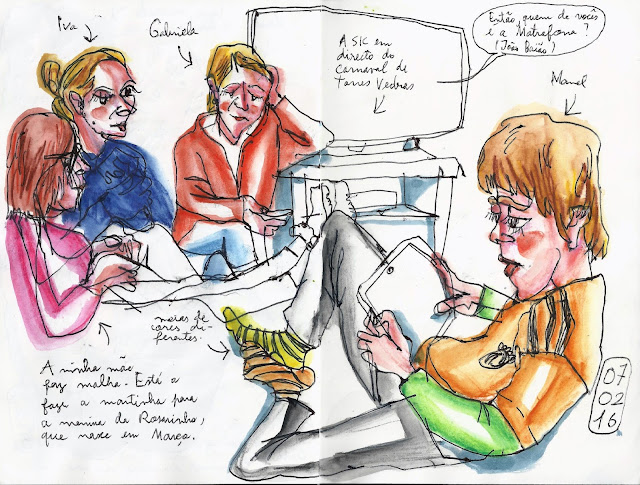 Iva
Gabriela
A SIC em
directo do
carnaval de
Torres Vedras
Então, quem de vocês
é a Matrafona?
(João Baião)
Manel
meias de
cores di-
ferentes.
A minha mãe
faz malha. Está a
faze a mantinha para
a menina da Rosarinho,
que nasce em Março.
07
02
16